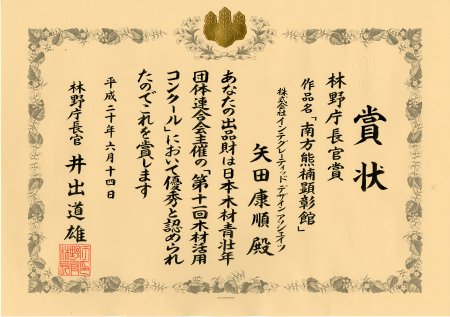 賞状
林野庁長官賞
作品名「南方熊楠顕彰館」
株式会社インテグレーティッドデザインアソシエイツ
矢田康順殿
あなたの出品財は日本木材青壮年
団体連合会主催の「第十一回木材活用
コンクール」において優秀と認められ
たのでこれを賞します
平成二十年六月十四日
林野庁長官 井出道雄